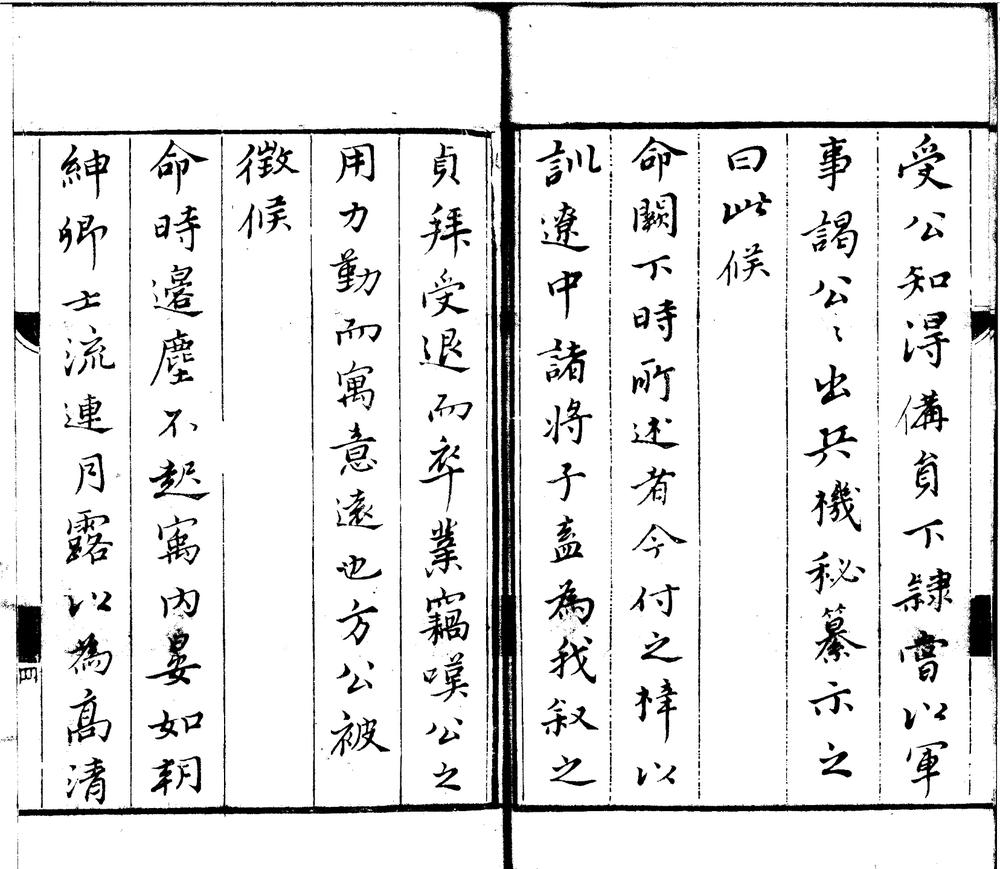 受公知得備員下隸嘗以軍
事謁公〻出兵機秘纂示之
曰此候
命闕下時所述者今付之梓以
訓遼中諸將子盍為我叙之
貞拜受退而卒業竊嘆公之
用力勤而寓意遠也方公被
徵候
命時邊塵不起寓內晏如朝
紳卿士流連月露以為高清